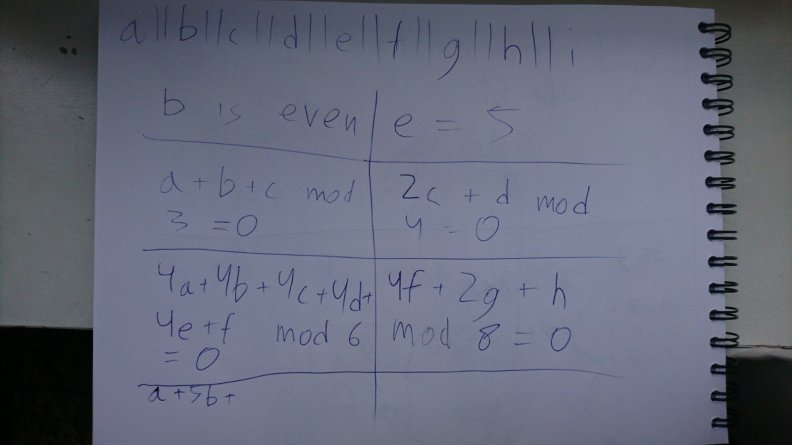 a||b||c||d||e||f||g||h||i
b is even
e = 5
a+b+c mod
3 =0
2c + d mod
4 = 0
4a+4b+4c+4d+
4e+f mod 6
= 0
4f+2g+h
mod 8 = 0
a+5b+